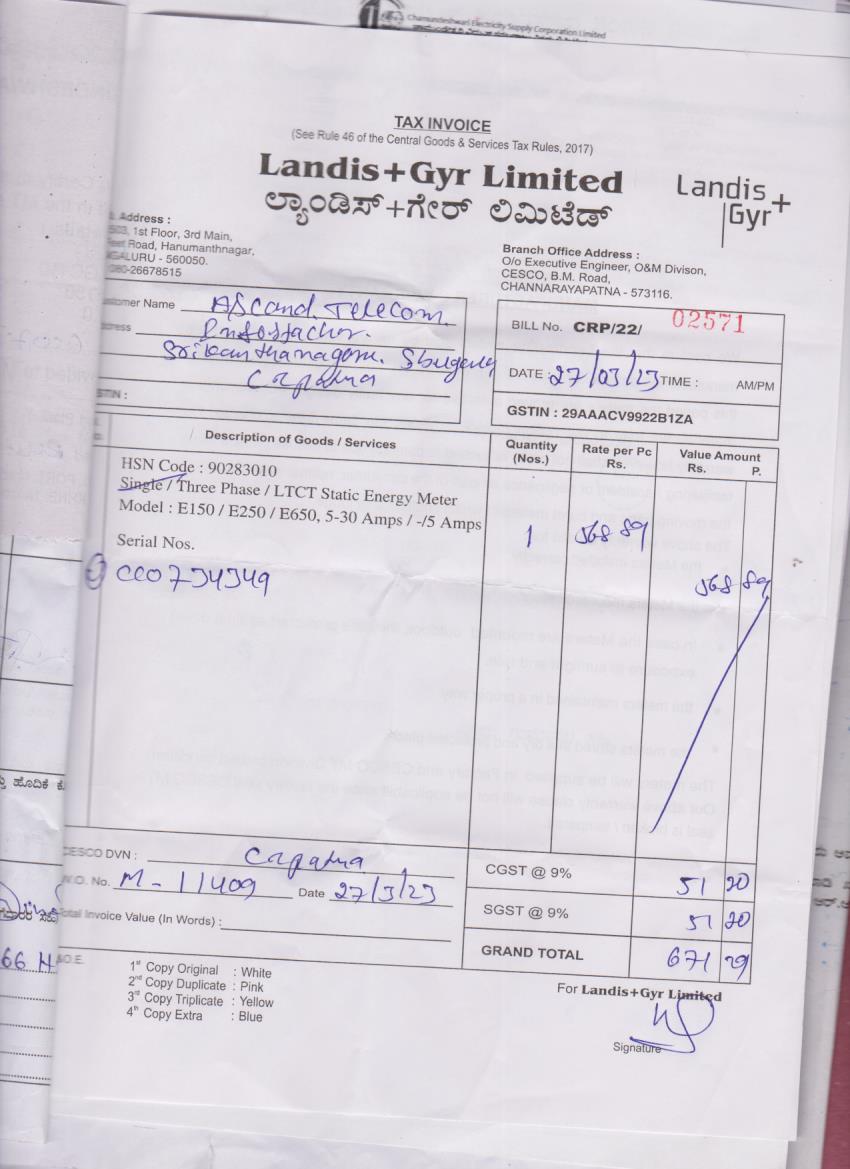 Chamundeshwari Electricity Supply Corporation Limited
TAX INVOICE
(See Rule 46 of the Central Goods & Services Tax Rules, 2017)
Landis+Gyr Limited
ಲ್ಯಾಂಡಿಸ್+ಗೇರ್ ಲಿಮಿಟೆಡ್
Landis+
Gyr
Address :
1st Floor, 3rd Main,
Road, Hanumanthnagar,
- 560050.
26678515
Branch Office Address :
O/o Executive Engineer, O&M Divison,
CESCO, B.M. Road,
CHANNARAYAPATNA - 573116.
Name Ascand Telecom
Srikanthanagara.
Capatna
BILL No. CRP/22/ 02571
DATE : 27/03/23 TIME : AM/PM
GSTIN : 29AAACV9922B1ZA
Description of Goods / Services Quantity (Nos.) Rate per Pc Rs. Value Amount Rs. P.
HSN Code : 90283010
Single / Three Phase / LTCT Static Energy Meter
Model : E150 / E250 / E650, 5-30 Amps / -/5 Amps
1 568 89
Serial Nos.
568 89
CC0734349
CESCO DVN : Capatna
CGST @ 9% 51 20
W.O. No. M-11409 Date 27/3/23
SGST @ 9% 51 20
Total Invoice Value (In Words) :
GRAND TOTAL 671 29
1st Copy Original : White
2nd Copy Duplicate : Pink
3rd Copy Triplicate : Yellow
4th Copy Extra : Blue
For Landis+Gyr Limited
Signature
66 H